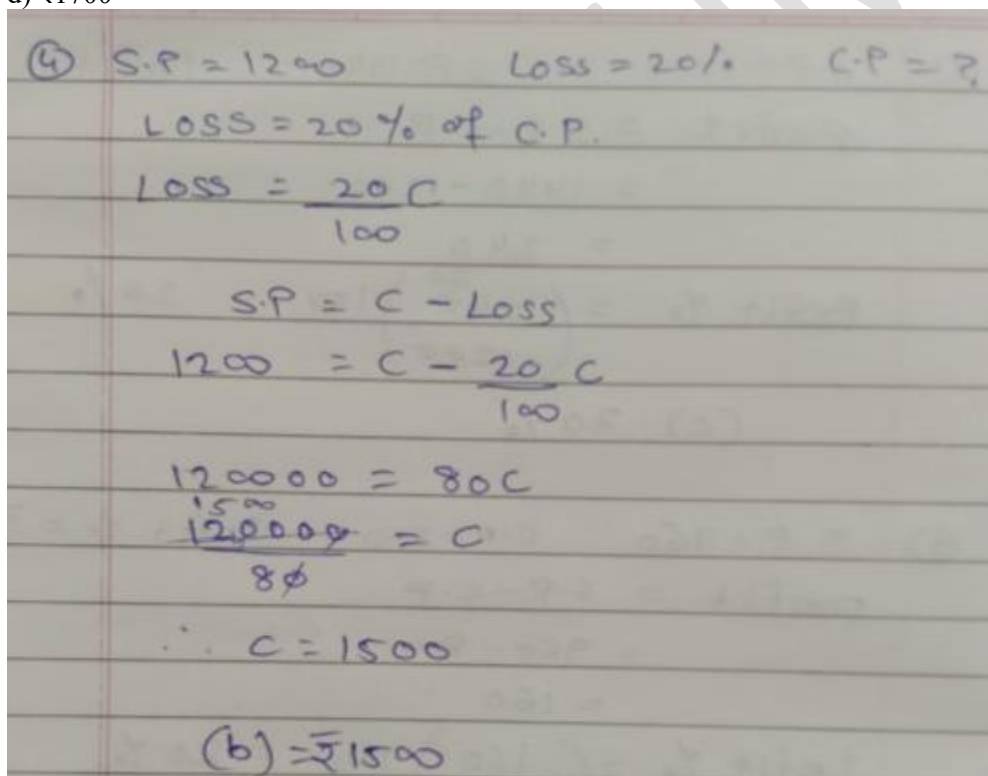 d) ₹1700
④ S.P = 1200 Loss = 20% C.P = ?
LOSS = 20% of C.P.
LOSS = 20 C
100
S.P = C - Loss
1200 = C - 20 C
100
120000 = 80C
1500
120000 = C
80
∴ C = 1500
(b) = ₹1500